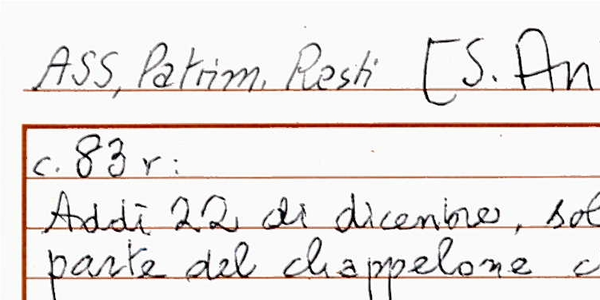 ASS, Patrim. Resti [S. An
c. 83 r:
Addì 22 di dicenbre, sol
parte del chappelone c